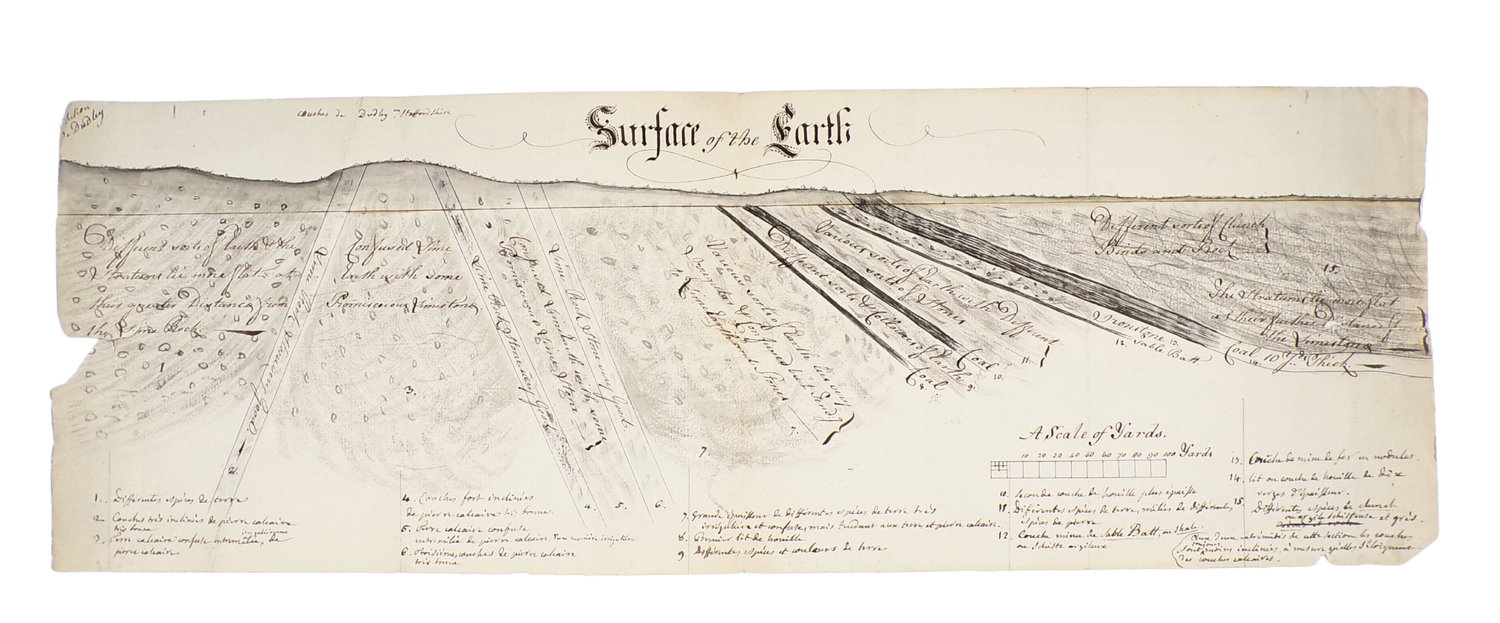 Dudley
Couches de Dudley en Staffordshire
Surface of the Earth
Different sorts of Earth & the
Stratums lie more flat at
their greater Distance from
the Lime Rock
1
Lime Rock
2
Confused Lime
Earth with some
Promiscuous Limestone
3.
Lime Rock Stone very Good
4.
Confused Lime Earth with some
Promiscuous Veins of Stone
5.
Lime Rock Stone very Good.
6.
7
Various sorts of Earth
7.
Coal
8.
Different sorts & Colours of Earth
9.
Coal
10.
Various sorts of Earth with Different
sorts of Stones
11.
Ironstone 13.
12. Table Batt
Coal 10 Yds. Thick
14.
Different sorts of Clunch
Binds and Rock
15.
The Stratums lie more flat
at their further Distance from
the Limestone
A Scale of Yards.
10 20 30 40 50 60 70 80 90 100 Yards
1. Differentes espèces de terre
2. Couches très inclinées de pierre calcaire
très bonne
3. Terre calcaire confuse entremêlée de
pierre calcaire
4. Couches fort inclinées
de pierre calcaire très bonne.
5. Terre calcaire confuse
entremêlée de pierre calcaire
6. troisième couches de pierre calcaire
très bonne
7. Grande épaisseur de différentes espèces de terre très
irrégulière et confuse, mais tendant aux terre et pierre calcaire.
8. Premier lit de houille
9. differentes espèces et couleurs de terre
10. seconde couche de houille plus épaisse
11. Différentes espèces de terre, mêlées de différentes
espèces de pierre
12. Couche mince de table Batt, ou shale,
ou schiste argileux
13. Couche de mine de fer en nodules.
14. lit ou couche de houille de dix
verges d'épaisseur.
15. Différentes espèces de clunch
ou argile schisteuse et grès.
aux deux extrémités de cette section les couches
sont moins inclinées, à mesure qu'elles s'éloignent
des couches calcaires.